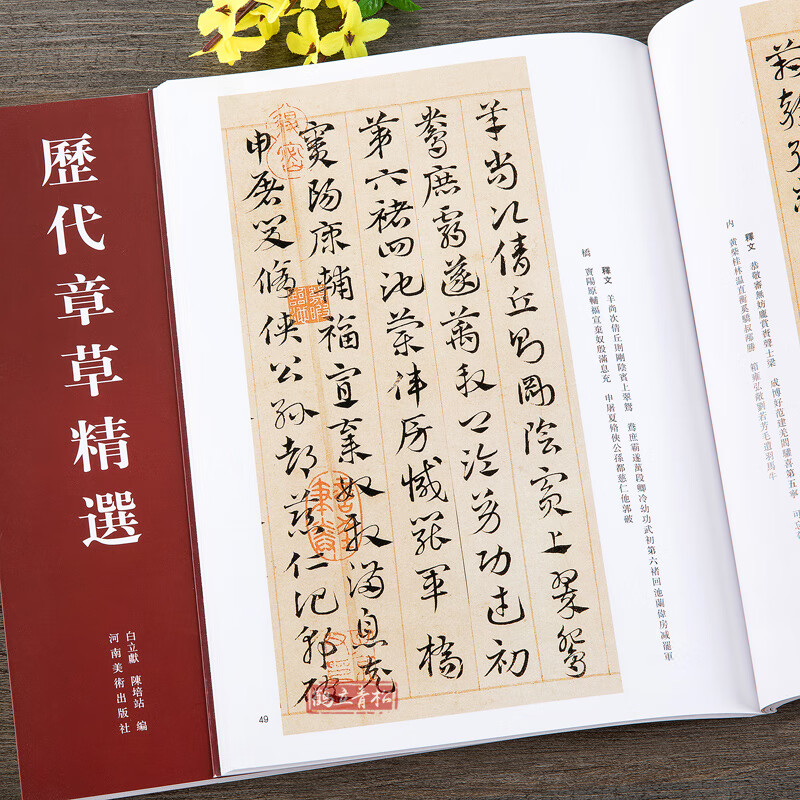 歷代章草精選
白立獻 陳培站 編
河南美術出版社
羊尚次倩丘則剛陰賓上翠鴛
鴦庶霸遂萬段卿冷幼功武初
第六褚回池蘭偉房減罷軍橋
竇陽原輔福宣棄奴殷滿息充
申屠夏脩俠公孫都慈仁他郭破
釋文 羊尚次倩丘則剛陰賓上翠鴛 鴦庶霸遂萬段卿冷幼功武初 第六褚回池蘭偉房減罷軍
橋 竇陽原輔福宣棄奴殷滿息充 申屠夏脩俠公孫都慈仁他郭破
49
釋文 恭敬審無妨龐賞賚聲士梁 成博好范建羌閻驩喜第五寧
内 黄柴桂林温直衡奚驕叔邴勝 箱雍弘敞劉若芳毛遺羽馬牛
鹤立青松